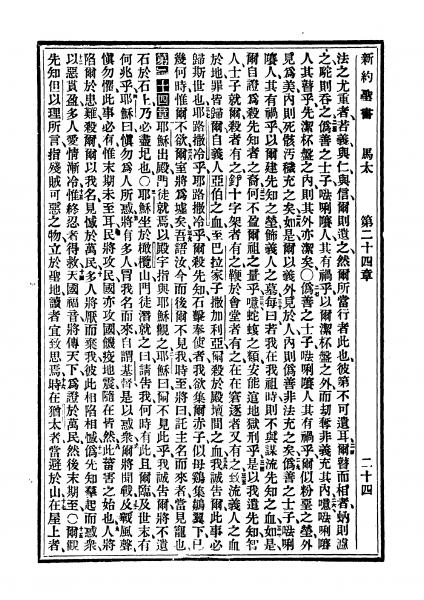 新約聖書 馬太 第二十四章 二十四
法之尤重者者義與仁與信爾則遺之然爾所當行者此也彼第不可遺耳爾瞽而相者蚋則濾
之駝則吞之僞爲善之士子唎嚷人其有禍乎以爾潔杯盤之外而刼奪非義充其內噫唎嚷
人其瞽乎先潔杯盤之內則其外亦潔矣〇僞爲善之士子唎嚷人其有禍乎爾似粉堊之塋外
見爲美內則死骸汚穢充之矣如是爾以義外見於人內則僞爲善非法充之矣僞爲善之士子唎
嚷人其有禍乎以爾建先知之塋飾義人之墓每曰若我在我祖時則不與謀流先知之血如是
爾自證爲殺先知者之裔何不盈爾祖之量乎噫蛇蝮之類安能逭地獄刑乎是以我遺先知智
人士子就爾殺者有之釘十字架者有之鞭於會堂者有之在在窘逐者又有之致流義人之血
於地罪皆歸爾自義人亞伯之血至巴拉家子撒加利亞爾殺於殿壇間之血我誠告爾此事必
歸斯世也耶路撒冷乎耶路撒冷乎爾殺先知石擊奉使者我欲集爾赤子似母鷄集雛翼下已
幾何時惟爾不欲爾室將爲墟矣我語汝今而後爾不見我時至將曰託主名而來者當見寵也
第二十四章 耶穌出殿門徒就焉以殿宇指與耶穌觀之耶穌曰爾不見此乎我誠告爾將不遺
石於石上乃必盡圮也〇耶穌坐於橄欖山門徒潛就之曰請告我何時有此且爾臨及世末有
何兆乎耶穌曰愼勿爲人所惑將有多人冒我名而來自謂基督是以惑衆爾將聞戰及戰風聲
愼勿懼此事必有惟末期未至耳民將攻民國亦攻國饑疫地震隨在皆然此菑害之始也人將
陷爾於患難殺爾爾以我名見憾於萬民多人將厭而棄我彼此相陷相憾僞先知羣起而惑衆
以惡貫盈多人愛情漸冷惟終忍者得救天國福音將傳天下爲證於萬民然後末期至〇爾觀
先知但以理所言指殘賊可惡之物立於聖地讀者宜致思焉時在猶太者當避於山在屋上者